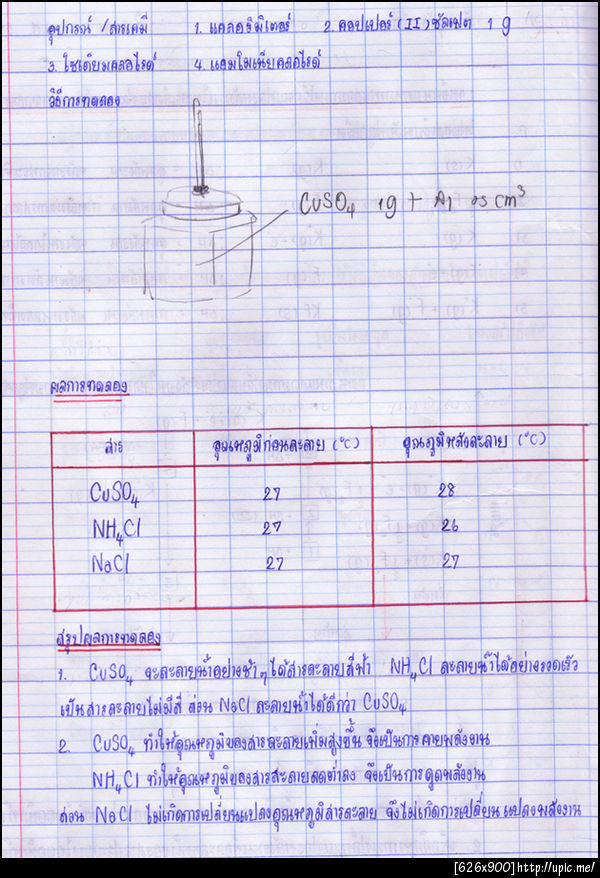 อุปกรณ์ / สารเคมี 1. แคลอริมิเตอร์ 2. คอปเปอร์ (II) ซัลเฟต 1 g
3. โซเดียมคลอไรด์ 4. แอมโมเนียคลอไรด์
วิธีการทดลอง
CuSO4 1g + cm3
ผลการทดลอง
สาร อุณหภูมิก่อนละลาย (°C) อุณภูมิหลังละลาย (°C)
CuSO4 27 28
NH4Cl 27 26
NaCl 27 27
สรุปผลการทดลอง
1. CuSO4 จะละลายน้ำอย่างช้าๆ ได้สารละลายสีฟ้า NH4Cl ละลายน้ำได้อย่างรวดเร็ว
เป็นสารละลายไม่มีสี ส่วน NaCl ละลายน้ำได้ดีกว่า CuSO4
2. CuSO4 ทำให้อุณหภูมิของสารละลายเพิ่มสูงขึ้น จึงเป็นการคายพลังงาน
NH4Cl ทำให้อุณหภูมิของสารละลายลดต่ำลง จึงเป็นการดูดพลังงาน
ส่วน NaCl ไม่เกิดการเปลี่ยนแปลงอุณหภูมิสารละลาย จึงไม่เกิดการเปลี่ยนแปลงพลังงาน
[626x900]http://upic.me/